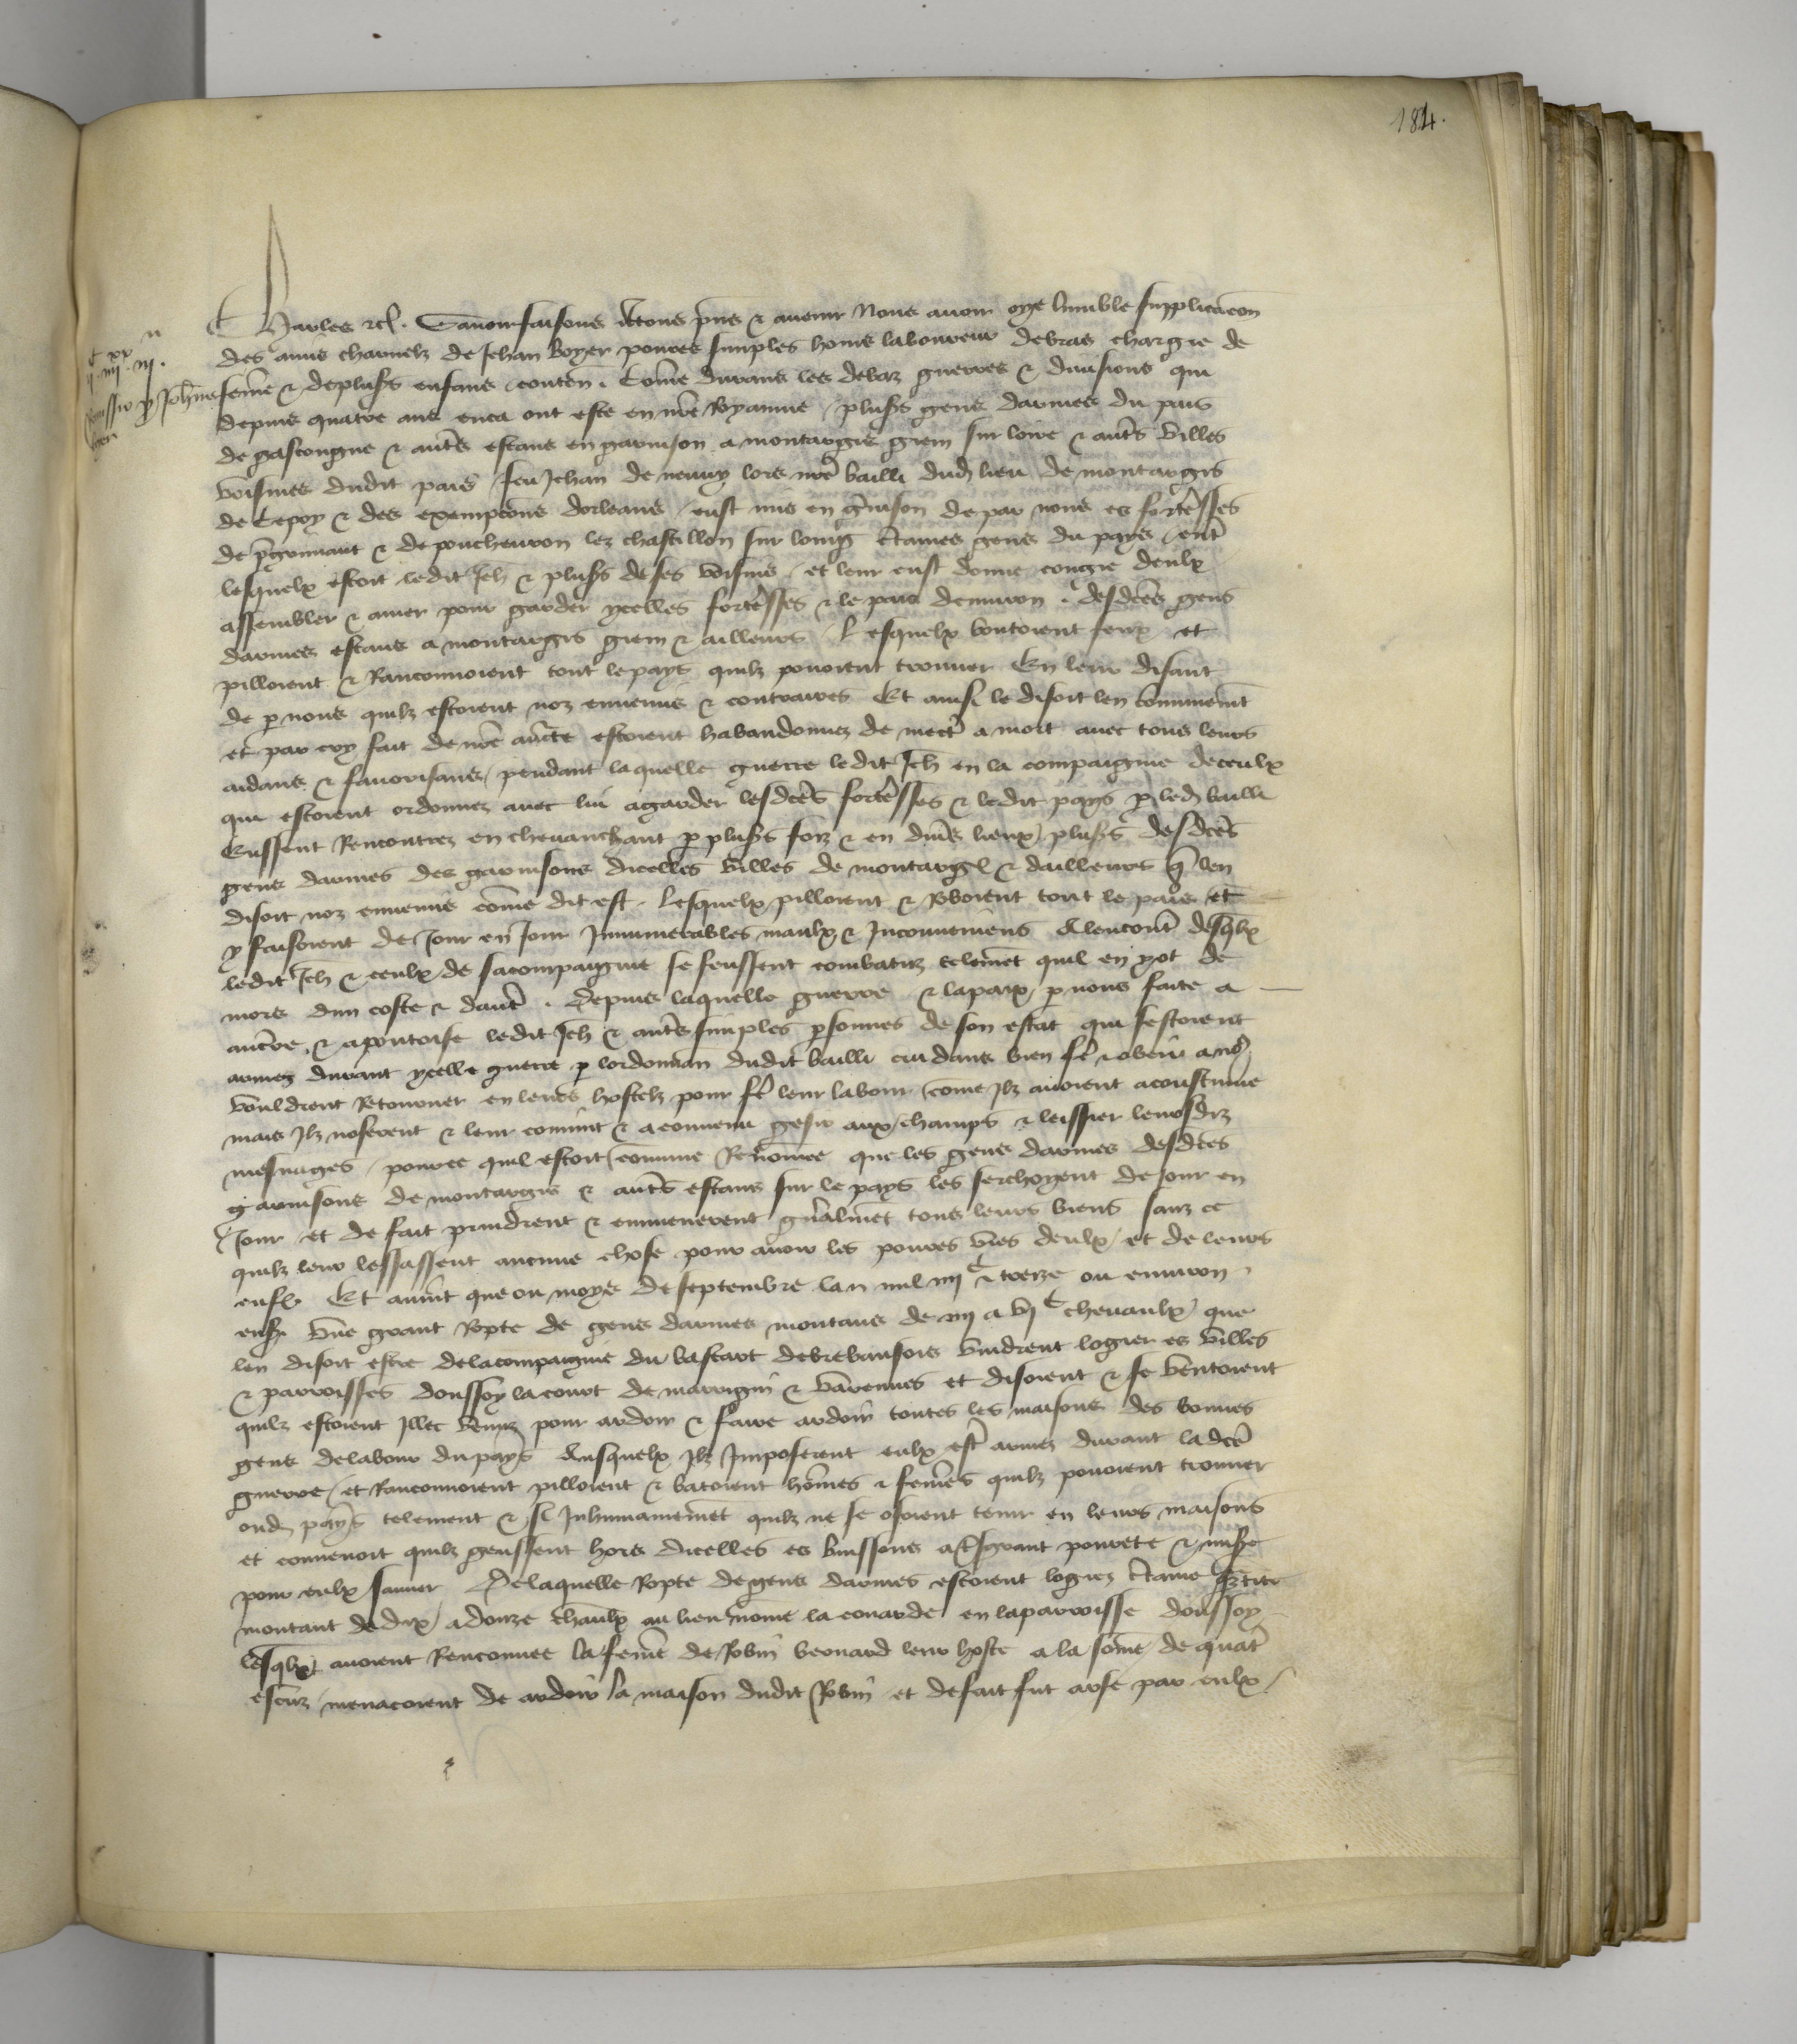 184.
Charles etc. Savoir faisons a tous pns & avenir Nous avoir oye lumble supplicacon
des amis charnelz de Jehan Boyer povres simples homs laboureur de bras chargie de
feme & de plusrs enfans conten. Come durans les debaz guerres & divisions qui
depuis quatre ans enca ont este en nre Royaume / plusrs gens darmes du pais
de gascongne & autrs estans en garnison a montargis gien sur loire & autrs villes
voisines dudit pais / feu Jehan de neuvy lors nre bailli dud lieu de montargis
de Cepoy & des exempcons dorleans / eust mis en grnison de par nous es fortresses
de & de lez chastillon sur loing crtaines gens du pays / entr
lesquelx estoit ledit Jeh & plusrs de ses voisins / et leur eust donne congie deulx
assembler & armer pour garder ycelles fortresses & le pais denviron / desdces gens
darmes estans a montargis gien & ailleurs / Lesquelx boutoient feux et
pilloient & Ranconnoient tout le pays quilz povoient trouver En leur disant
de p nous quilz estoient noz ennemis & contraires Et ainsi le disoit len communemt
et par cry fait de nre aucte estoient habandonnez de mectr a mort avec tous leurs
aidans & favorisans / pendant laquelle guerre ledit Jeh en la compaignie de ceulx
qui estoient ordonnez avec lui a garder lesdces fortresses & ledit pays p led bailli
Eussent Rencontrez en chevauchant p plusrs foiz & en divrs lieux / plusrs desdces
gens darmes des garnisons dicelles villes de montargis & dailleurs q len
disoit noz ennemis come dit est. Lesquelx pilloient & Roboient tout le pais et
y faisoient de Jour en Jour Innumerables maulx & Inconveniens A lencontr desqlx
ledit Jeh & ceulx de sa compaignie se feussent combatuz telemet quil en y ot de
mors dun coste & dautr. Depuis laquelle guerre & la paix p nous faite a
aucrre & a pontoise ledit Jeh & autrs simples psonnes de son estat qui sestoient
armez durant ycelle guerre p lordonnan dudit bailli cuidans bien fe & obeir a no
vouldrent Retourner en leurs hostelz pour fe leur labour come Ilz avoient acoustume
mais Ilz noserent & leur convint & a convenu gesir aux champs & leissier leursdiz
mesnages / pource quil estoit commune Renomee que les gens darmes desdces
garnisons de montargis & autrs estans sur le pays les serchoyent de Jour en
Jour / et de fait prindrent & emmenerent gnralmet tous leurs biens sanz ce
quilz leur lessassent aucune chose pour avoir les povres vies deulx / et de leurs
enf. Et avint que ou moys de septembre lan mil iiii c & treze ou environ
une grant Ropte de gens darmes montans de iiii a vi c chevaulx / que
len disoit estre de la compaignie du bastart de vindrent logier es villes
& parroisses doussoy la court de marigni & varennes et disoient & se ventoient
quilz estoient Illec venuz pour ardoir & faire ardoir toutes les maisons des bonnes
gens de labour du pays Ausquelx Ilz Imposerent eulx estr armez durant ladce
guerre / et Ranconnoient pilloient & batoient homes & femes quilz povoient trouver
oud pays telement & si Inhumainemet quilz ne se osoient tenir en leurs maisons
et convenoit quilz geussent hors dicelles es buissons a tsgrant povrete & misere
pour eulx sauver De laquelle Ropte de gens darmes estoient logiez crtaine
montant de dix / a douze chaulx au lieu nome la couarde en la parroisse doussoy
lesqlx avoient Renconnee la feme de Robin beouard leur hoste a la some de quatr
escuz / menacoient de ardoir la maison dudit Robin et de fait fut arse par eulx /